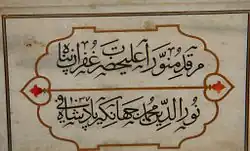 مرقد منور اعلیحضرت غفران پناه
نورالدین محمد جهانگیر پادشاه